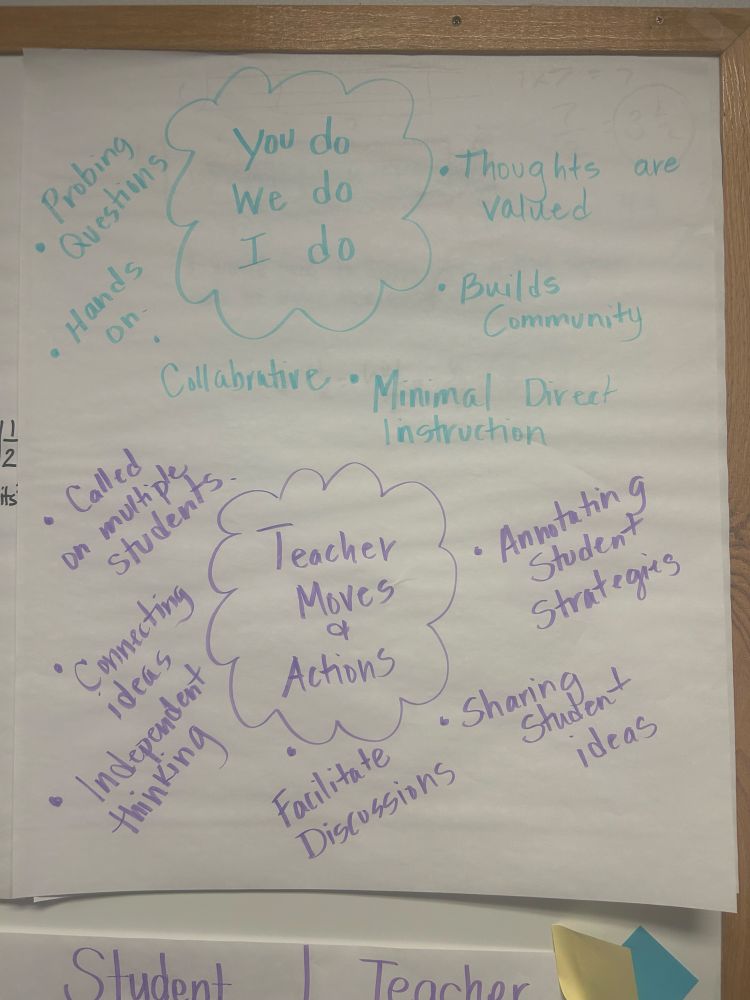 You do
We do
I do
• Probing
Questions
• Hands
on
• Collabrative
• Thoughts are
valued
• Builds
Community
• Minimal Direct
Instruction
1
2
its
Teacher
Moves
&
Actions
• Called
on multiple
students.
• Connecting
ideas
• Independent
thinking
• Facilitate
Discussions
• Annotating
Student
Strategies
• Sharing
Student
ideas
Student | Teacher